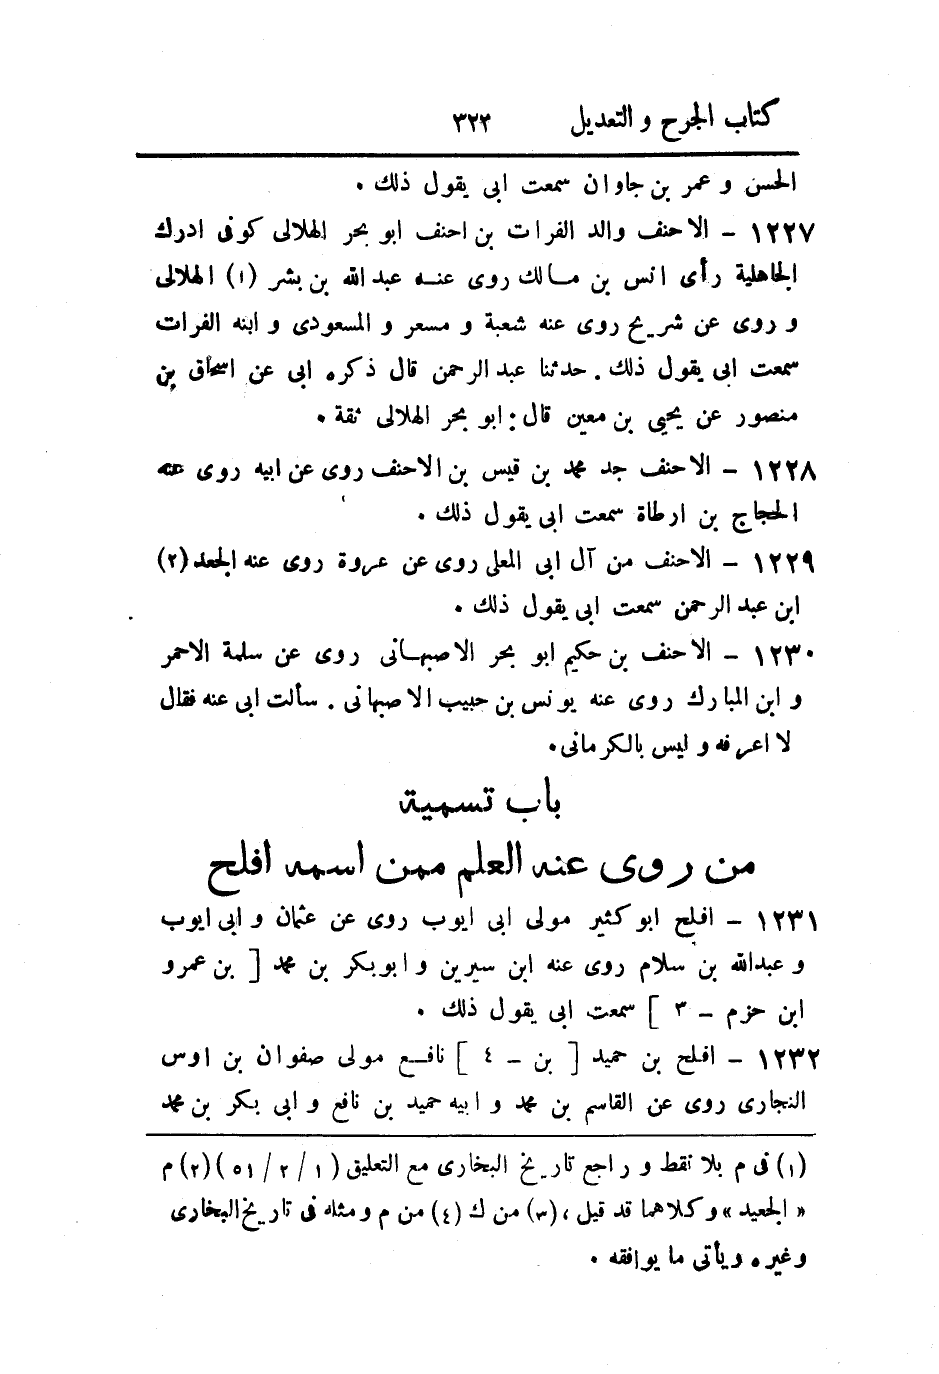 كتاب الجرح و التعديل ٣٢٣
الحسن و عمر بن جاوان سمعت ابى يقول ذلك .
١٢٢٧ - الاحنف والد الفرات بن احنف ابو بحر الهلالى كوفى ادرك
الجاهلية رأى انس بن مالك روى عنه عبد الله بن بشر (١) الهلالى
و روى عن شريح روى عنه شعبة و مسعر و المسعودى و ابنه الفرات
سمعت ابى يقول ذلك . حدثنا عبد الرحمن قال ذكره ابى عن اسحاق بن
منصور عن يحيى بن معين قال: ابو بحر الهلالى ثقة .
١٢٢٨ - الاحنف جد محمد بن قيس بن الاحنف روى عن ابيه روى عنه
الحجاج بن ارطاة سمعت ابى يقول ذلك .
١٢٢٩ - الاحنف من آل ابى المعلى روى عن عروة روى عنه الجعد (٢)
ابن عبد الرحمن سمعت ابى يقول ذلك .
١٢٣٠ - الاحنف بن حكيم ابو بحر الاصبهانى روى عن سلمة الاحمر
و ابن المبارك روى عنه يونس بن حبيب الاصبهانى . سألت ابى عنه فقال
لا اعرفه و ليس بالكرمانى .
باب تسمية
من روى عنه العلم ممن اسمه افلح
١٢٣١ - افلح ابو كثير مولى ابى ايوب روى عن عثمان و ابى ايوب
و عبدالله بن سلام روى عنه ابن سيرين و ابوبكر بن محمد [ بن عمرو
ابن حزم - ٣ ] سمعت ابى يقول ذلك .
١٢٣٢ - افلح بن حميد [ بن - ٤ ] نافع مولى صفوان بن اوس
النجارى روى عن القاسم بن محمد و ابيه حميد بن نافع و ابى بكر بن محمد
(١) فى م بلا نقط و راجع تاريخ البخارى مع التعليق (١ / ٢ / ٥١) (٢) م
« الجعيد » و كلاهما قد قيل ، (٣) من ك (٤) من م ومثله فى تاريخ البخارى
وغيره ويأتى ما يوافقه .